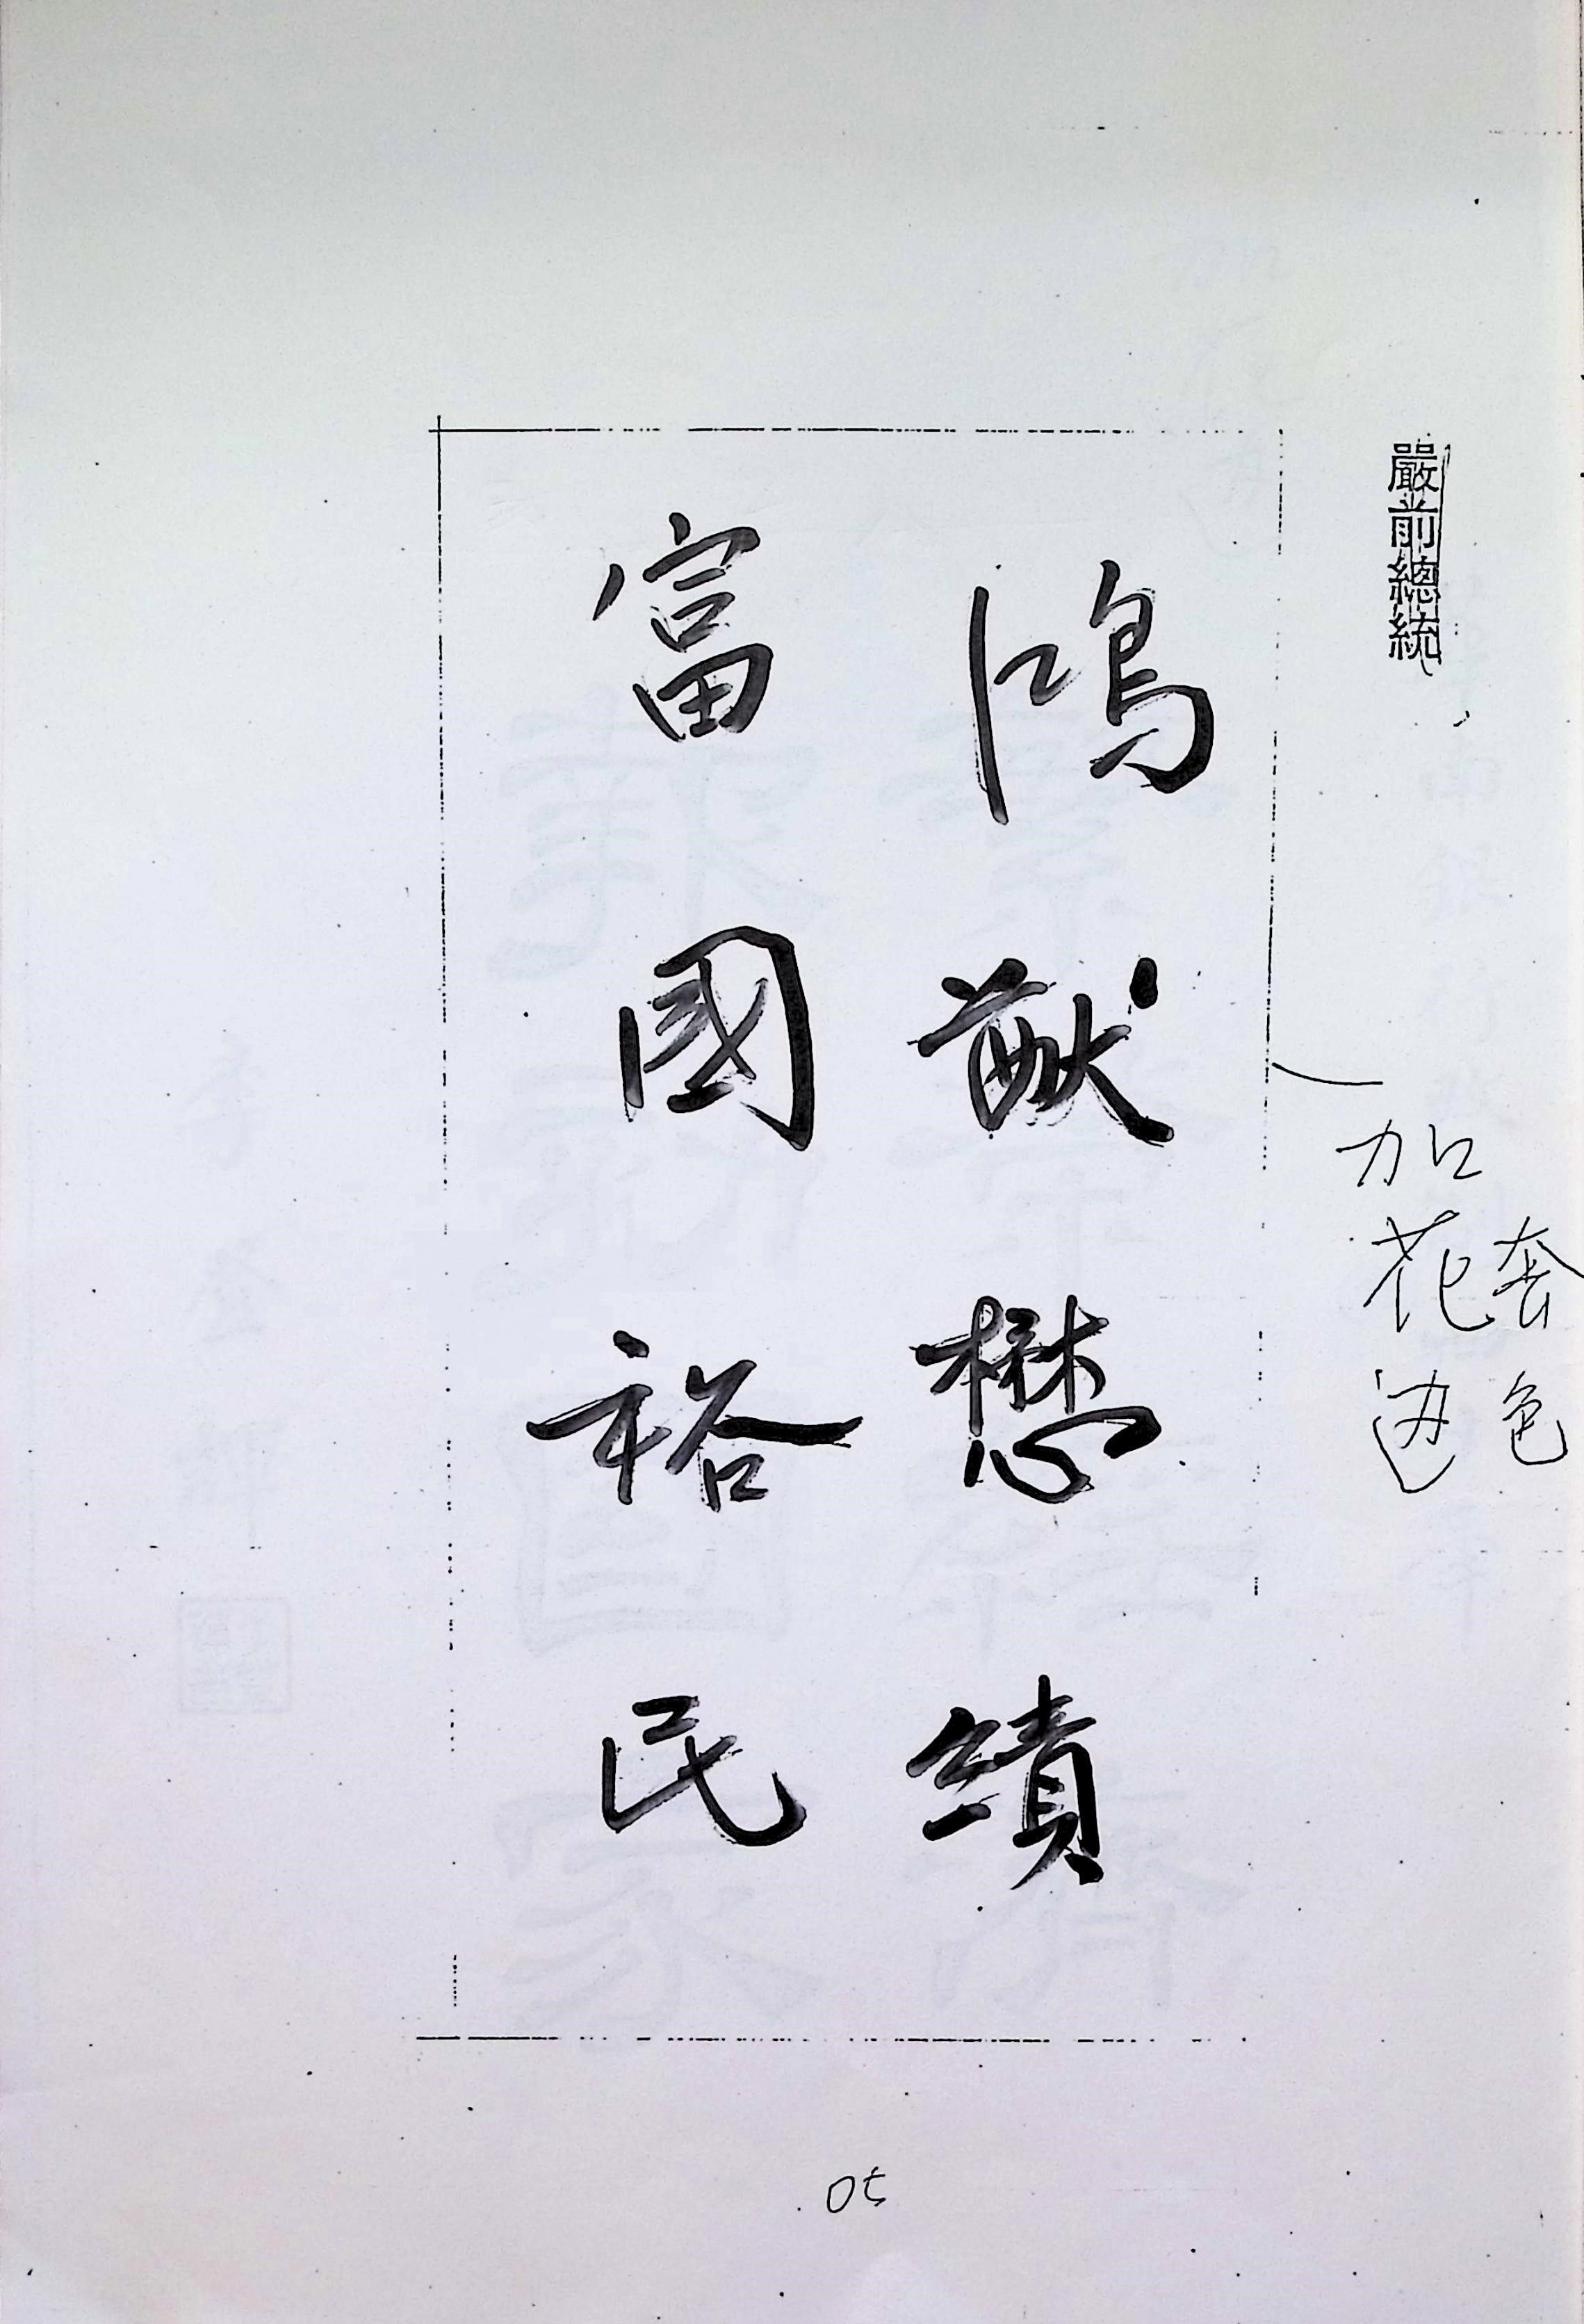 嚴前總統
鴻猷懋績
富國裕民
加花边
套色
05